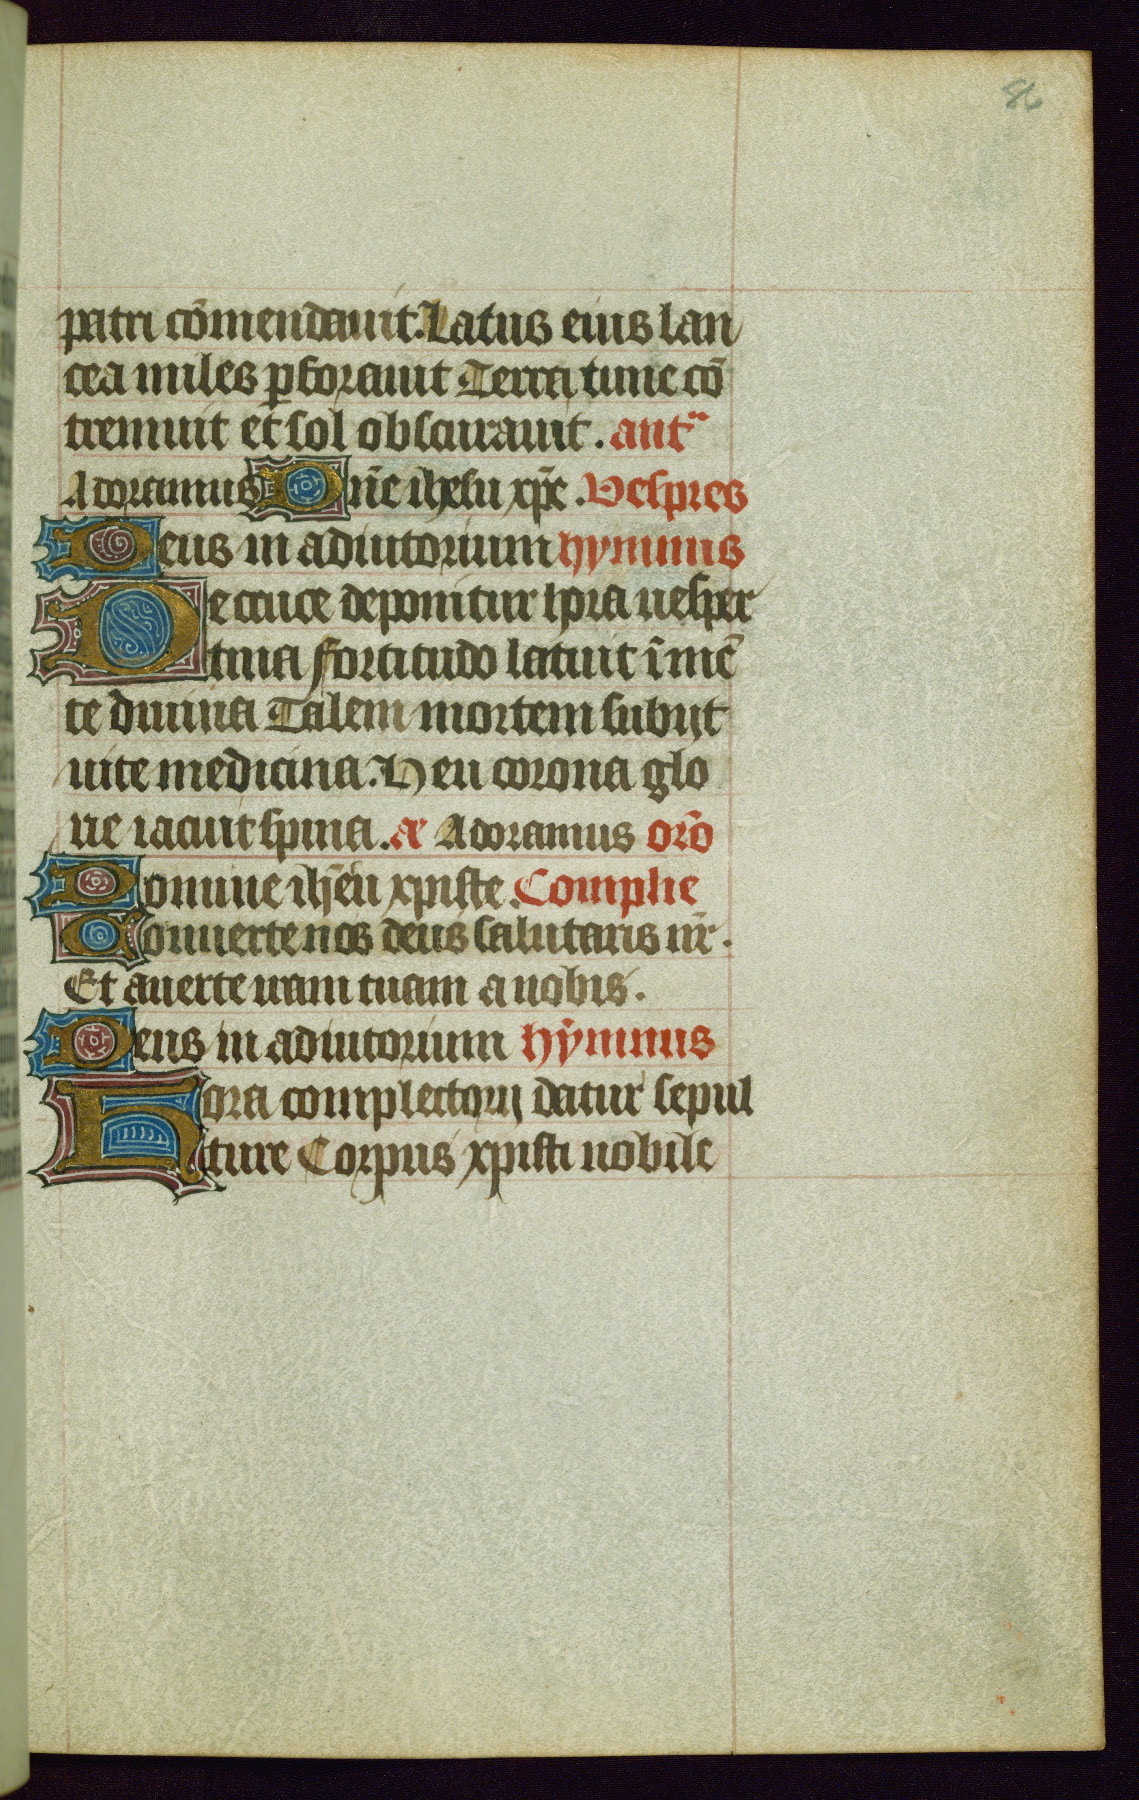 86
patri cōmendauit. Latus eius lan
cea miles ꝑforauit Terra tunc cō
tremuit et sol obscurauit. ant̃
Adoramus Dn̄e ih̄esu xp̄e. Vespres
Deus in adiutorium hymnus
De cruce deponitur hora uesper
tina fortitudo latuit ī mē
te diuina Talem mortem subijt
uite medicina. Heu corona glo
rie iacuit spina. a᷑ Adoramus or̄o
Domine ih̄eu xpiste. Complie
Conuerte nos deus salutaris nr̄.
Et auerte iram tuam a nobis.
Deus in adiutorium hȳmnus
Hora complectorij datur sepul
ture Corpus xpisti nobile